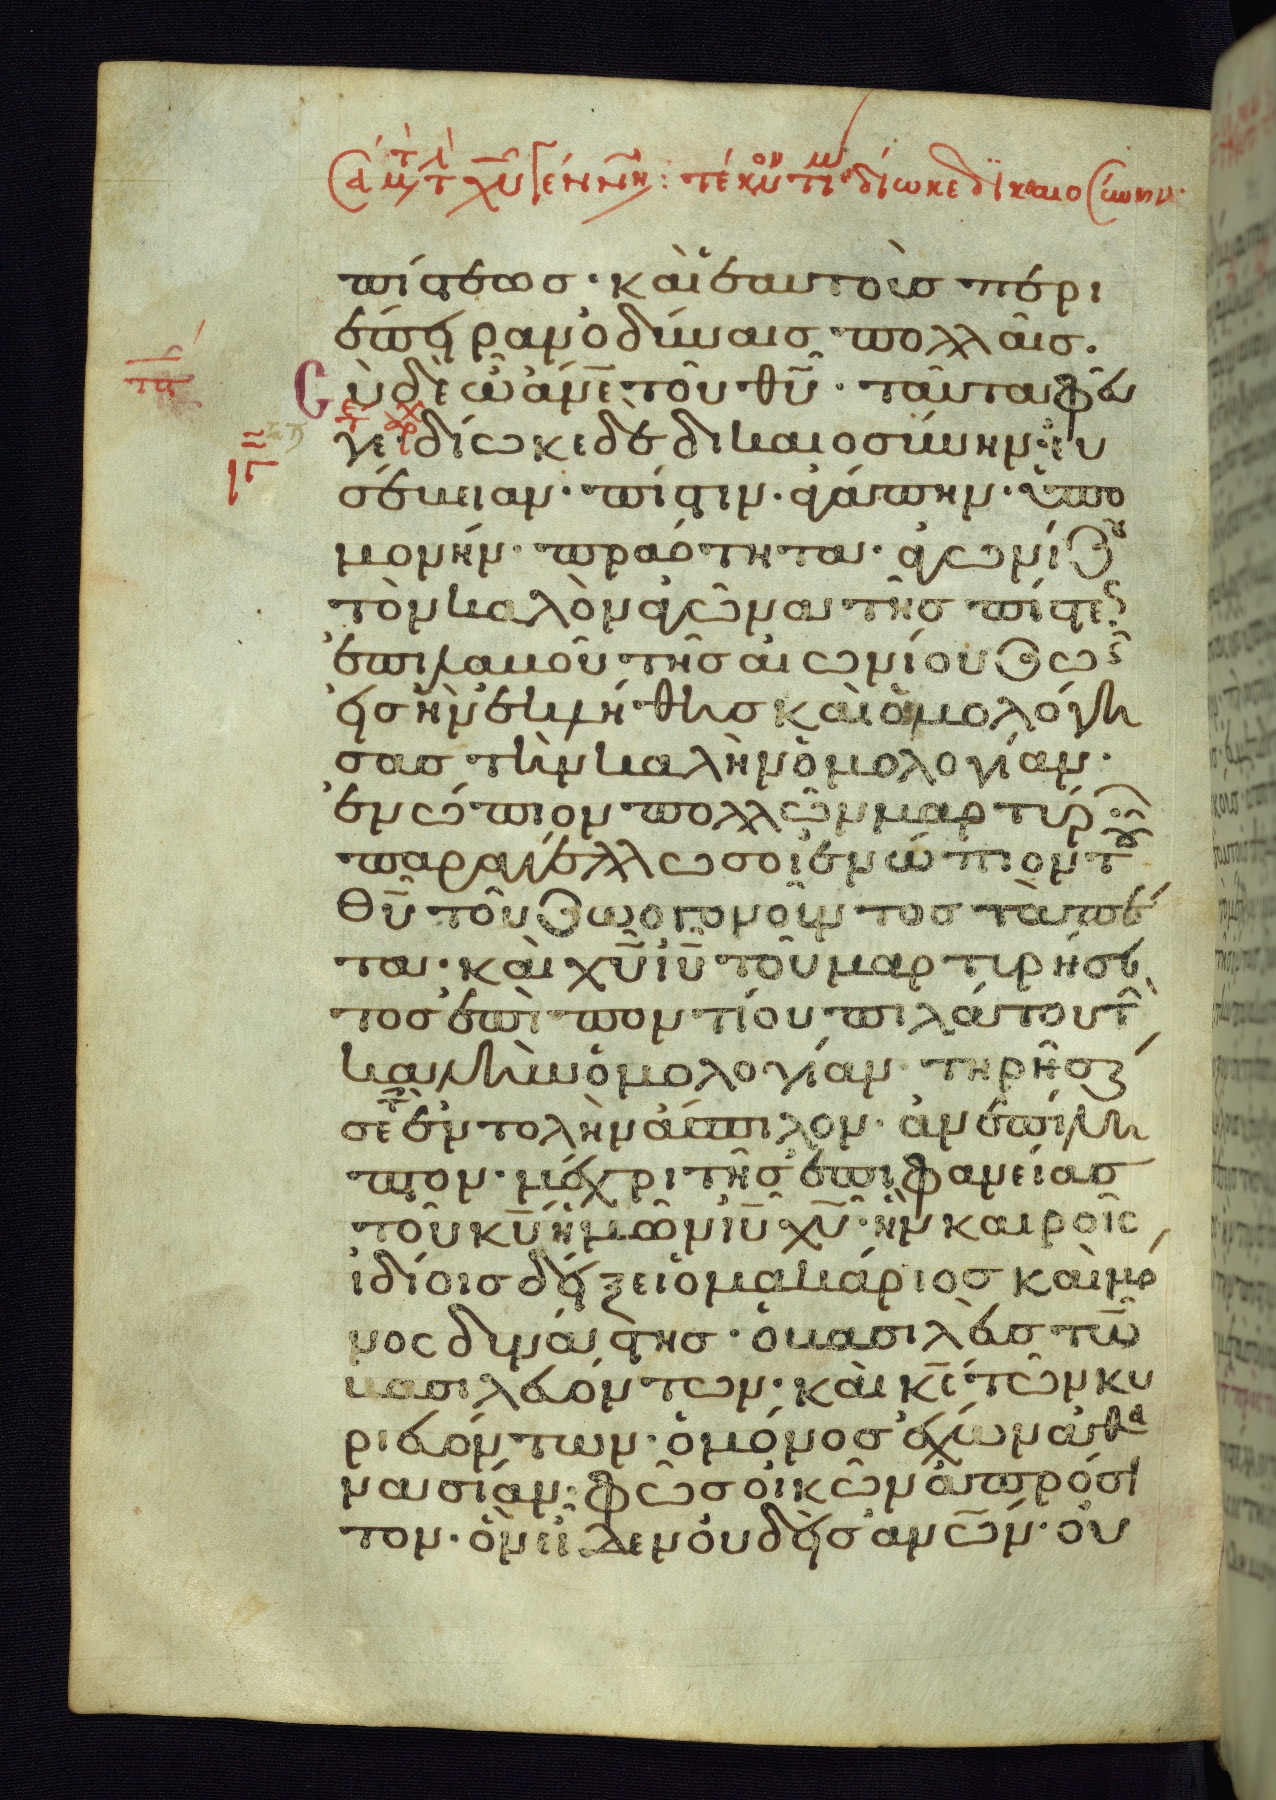 Σα μτ τ χυ γεννη: τεκνον τιμοθ δίωκε δικαιοσύνην
πίστεως· καὶ ἑαυτοὺσ περι
έπειραν ὀδύναισ πολλαῖσ.
Σὺ δὲ ὦ ἄνε τοῦ θυ· ταῦτα φεῦ
γε· δίωκε δὲ δικαιοσύνην· εὐ
σέβειαν· πίστιν· ἀγάπην· ὑπο
μονήν· πραότητα· ἀγωνίζου
τὸν καλὸν ἀγῶνα τῆσ πίστεως
ἐπιλαβοῦ τῆσ αἰωνίου ζωῆς
εἰσ ἣν ἐκλήθησ καὶ ὁμολόγη
σασ τὴν καλὴν ὁμολογίαν·
ἐνώπιον πολλῶν μαρτύρων
παραγγέλλω σοι ἐνώπιον τοῦ
θυ τοῦ ζωογονοῦντοσ τὰ πάν
τα· καὶ χυ ιυ τοῦ μαρτιρήσαν
τοσ ἐπὶ ποντίου πιλάτου τὴν
καλὴν ὁμολογίαν· τηρῆσαι
σε τὴν ἐντολὴν ἄσπιλον· ἀνεπίλη
πτον· μέχρι τῆσ ἐπιφανείασ
τοῦ κυ ἡμῶν ιυ χυ· ἣν καιροῖς
ἰδίοισ δείξει ὁ μακάριοσ καὶ μό
νος δυνάστησ· ὁ βασιλεὺσ τῶν
βασιλευόντων· καὶ κε τῶν κυ
ριευόντων· ὁ μόνοσ ἔχων ἀθα
νασίαν· φῶσ οἰκῶν ἀπρόσι
τον· ὃν εἶδεν οὐδεὶσ ανων· οὐ